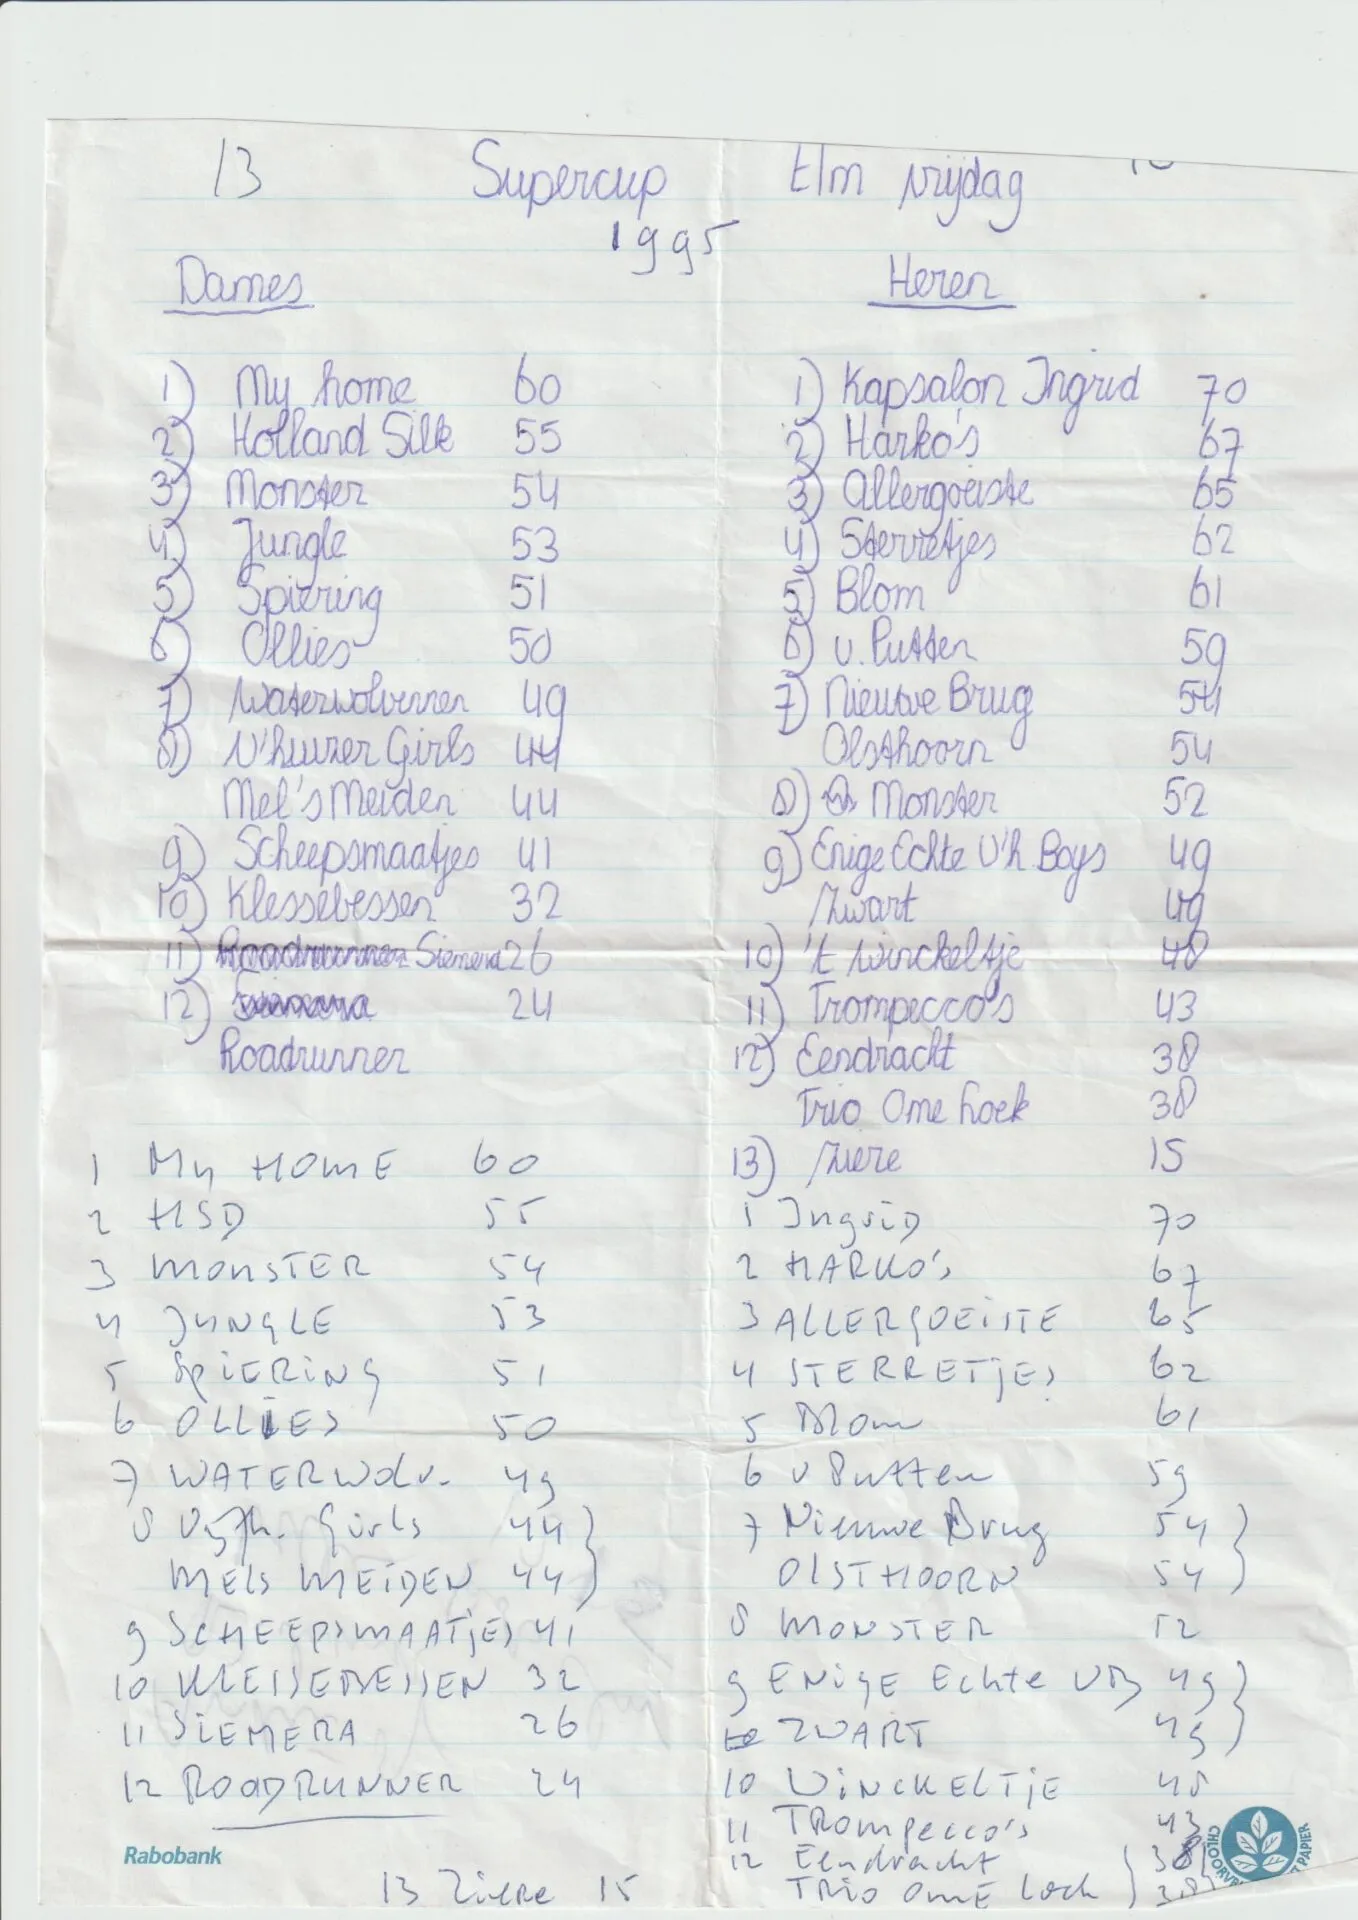 13 Supercup t/m vrijdag
1995
Dames Heren
1) My home 60 1) Kapsalon Ingrid 70
2) Holland Silk 55 2) Harko's 67
3) Monster 54 3) Allergoeiste 65
4) Jungle 53 4) Sterretjes 62
5) Spiering 51 5) Blom 61
6) Ollies 50 6) v. Putten 59
7) Waterwolvinnen 49 7) Nieuwe Brug 54
8) V'huizer Girls 44 Olsthoorn 54
Mel's Meiden 44 8) Monster 52
9) Scheepsmaatjes 41 9) Enige Echte V'h Boys 49
10) Klessebessen 32 Zwart 49
11) Roadrunner Siemena 26 10) 't Winckeltje 48
12) Siemena 24 11) Trompecco's 43
Roadrunner 12) Eendracht 38
Trio Ome Loek 38
1 My HOME 60 13) Ziere 15
2 HSD 55 1 Ingrid 70
3 MONSTER 54 2 HARKO's 67
4 JUNGLE 53 3 ALLERGOEISTE 65
5 SPIERING 51 4 STERRETJES 62
6 OLLIES 50 5 Blom 61
7 WATERWOLV. 49 6 v Putten 59
8 Vyfh. Girls 44 7 Nieuwe Brug 54
MELS MEIDEN 44 OLSTHOORN 54
9 SCHEEPSMAATJES 41 8 MONSTER 52
10 KLESSEBESSEN 32 9 ENIGE Echte VB 49
11 SIEMERA 26 ZWART 49
12 ROADRUNNER 24 10 WINCKELTJE 48
11 TROmpecco's 43
Rabobank 12 Eendracht 38
13 Ziere 15 TRIO OME Loek 38